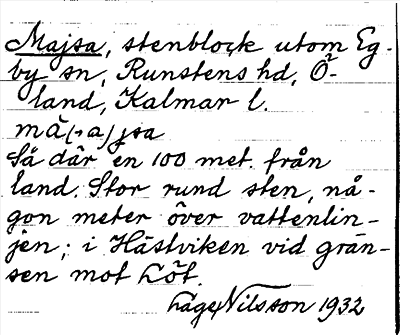 Majsa, stenblock utom Eg-
by sn, Runstens hd, Ö-
land, Kalmar l.
mà(-a)jsa
Så där en 100 met. från
land. Stor rund sten, nå-
gon meter över vattenlin-
jen; i Hästviken vid grän-
sen mot Löt.
Låge Nilsson 1932